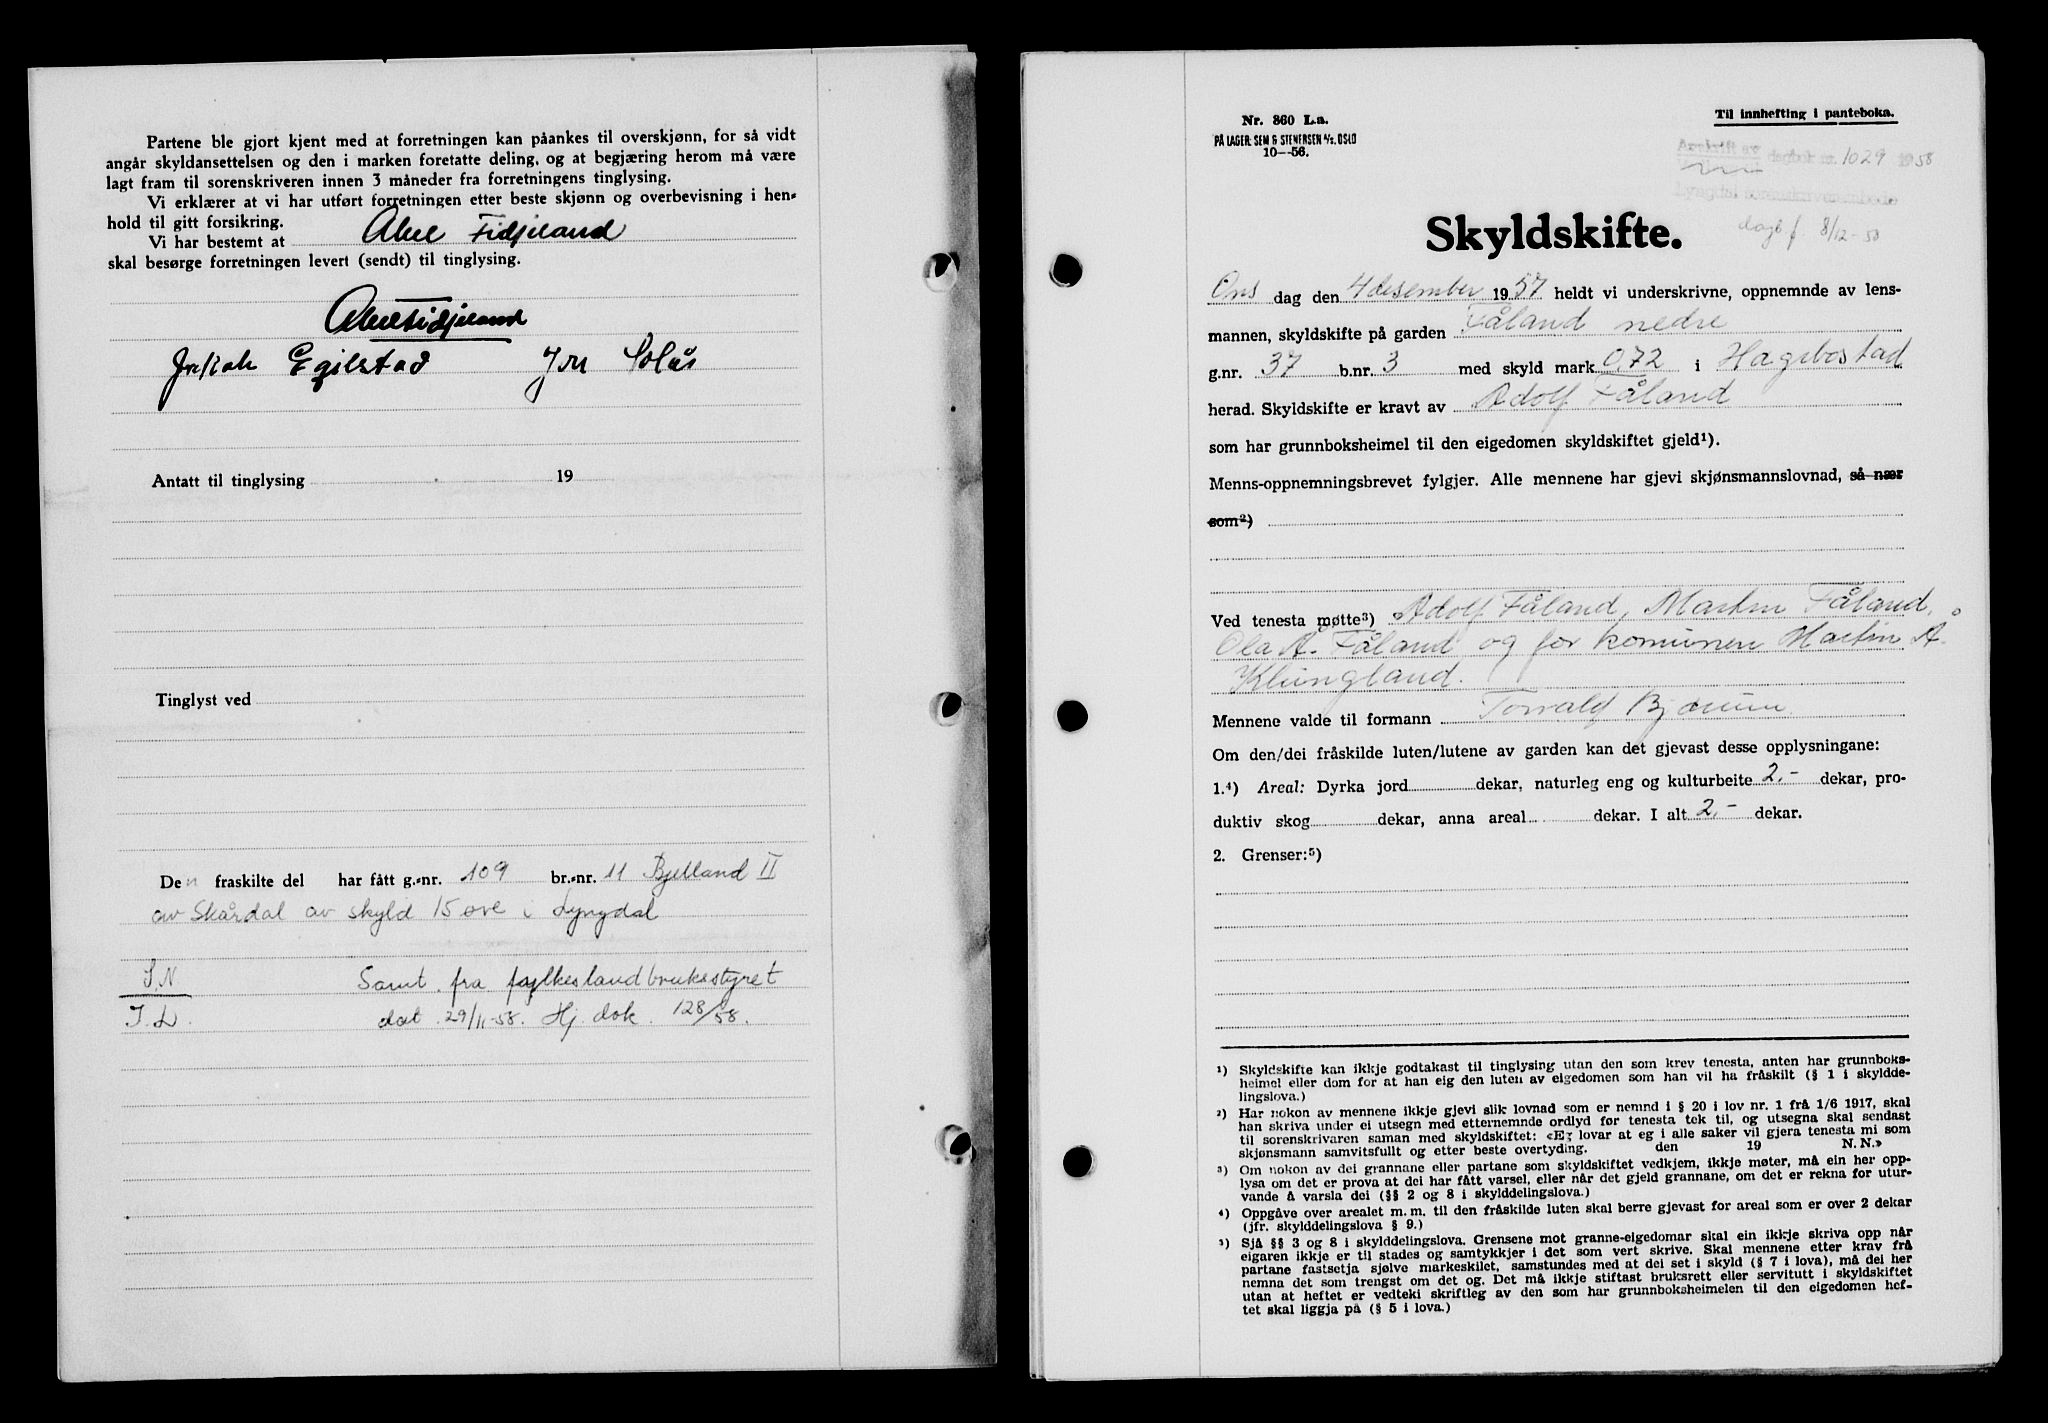 Partene ble gjort kjent med at forretningen kan påankes til overskjønn, for så vidt
angår skyldansettelsen og den i marken foretatte deling, og at begjæring herom må være
lagt fram til sorenskriveren innen 3 måneder fra forretningens tinglysing.
Vi erklærer at vi har utført forretningen etter beste skjønn og overbevisning i hen-
hold til gitt forsikring.
Vi har bestemt at Abel Fidjeland
skal besørge forretningen levert (sendt) til tinglysing.
Abel Fidjeland
Egilstad Jon Solås
Antatt til tinglysing 19
Tinglyst ved
Den fraskilte del har fått g.-nr. 109 br.-nr. 11 Bjelland II
av Skårdal av skyld 15 øre i Lyngdal
S.N Samt. fra fylkeslandbruksstyret
I.L. dat. 29/11-58. Hj. dok. 128/58.
Nr. 860 L.a.
PÅ LAGER: SEM & STENERSEN A/S. OSLO
10--56.
Til innhefting i panteboka.
Avskrift av dagbok nr. 1029 1958
Lyngdal sorenskriverembede
dagb f. 8/12-58
Skyldskifte.
Ons dag den 4 desember 1957 heldt vi underskrivne, oppnemnde av lens-
mannen, skyldskifte på garden Fåland nedre
g.nr. 37 b.nr. 3 med skyld mark 0,72 i Hægebostad
herad. Skyldskifte er kravt av Adolf Fåland
som har grunnboksheimel til den eigedomen skyldskiftet gjeld¹).
Menns-oppnemningsbrevet fylgjer. Alle mennene har gjevi skjønsmannslovnad, så nær
som²)
Ved tenesta møtte³) Adolf Fåland, Martin Fåland,
Ola Å. Fåland og for komunen Martin Å.
Klungland.
Mennene valde til formann Torvald Bjørum
Om den/dei fråskilde luten/lutene av garden kan det gjevast desse opplysningane:
1.⁴) Areal: Dyrka jord dekar, naturleg eng og kulturbeite 2.- dekar, pro-
duktiv skog dekar, anna areal dekar. I alt 2.- dekar.
2. Grenser:⁵)
¹) Skyldskifte kan ikkje godtakast til tinglysing utan den som krev tenesta, anten har grunnboks-
heimel eller dom for at han eig den luten av eigedomen som han vil ha fråskilt (§ 1 i skyldde-
lingslova.)
²) Har nokon av mennene ikkje gjevi slik lovnad som er nemnd i § 20 i lov nr. 1 frå 1/6 1917, skal
han skriva under ei utsegn med etternemnde ordlyd før tenesta tek til, og utsegna skal sendast
til sorenskrivaren saman med skyldskiftet: «Eg lovar at eg i alle saker vil gjera tenesta mi som
skjønsmann samvitsfullt og etter beste overtyding. den 19 N. N.»
³) Om nokon av dei grannane eller partane som skyldskiftet vedkjem, ikkje møter, må ein her opp-
lysa om det er prova at dei har fått varsel, eller når det gjeld grannane, om det er rekna for utur-
vande å varsla dei (§§ 2 og 8 i skylddelingslova.)
⁴) Oppgåve over arealet m. m. til den fråskilde luten skal berre gjevast for areal som er over 2 dekar
(jfr. skylddelingslova § 9.)
⁵) Sjå §§ 3 og 8 i skylddelingslova. Grensene mot granne-eigedomar skal ein ikkje skriva opp når
eigaren ikkje er til stades og samtykkjer i det som vert skrive. Skal mennene etter krav frå
partane fastsetja sjølve markeskilet, samstundes med at dei set i skyld (§ 7 i lova), må dei her
nemna det som trengst om det og. Det må ikkje stiftast bruksrett eller servitutt i skyldskiftet
utan at heftet er vedteki skriftleg av den som har grunnboksheimelen til den eigedomen hef-
tet skal liggja på (§ 5 i lova.)